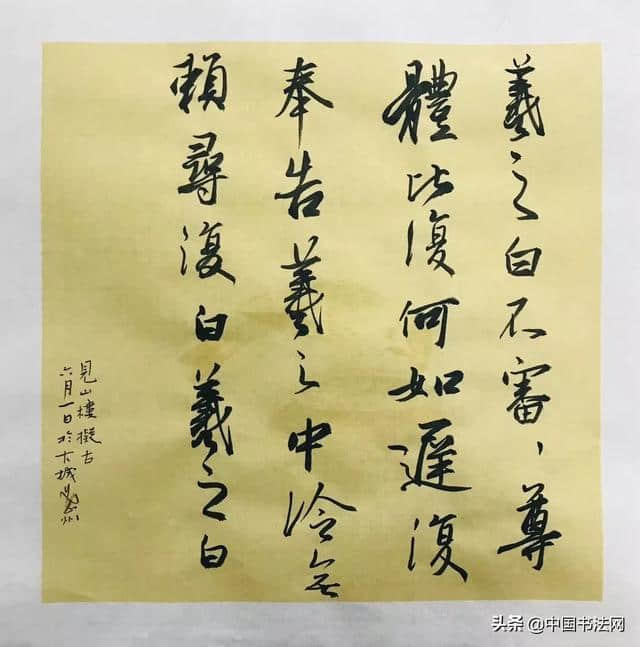 羲之白不審、尊
體比復何如遲復
奉告羲之中冷無
賴尋復白羲之白
見山樓擬古
六月一日於古城
州
头条@中国书法网